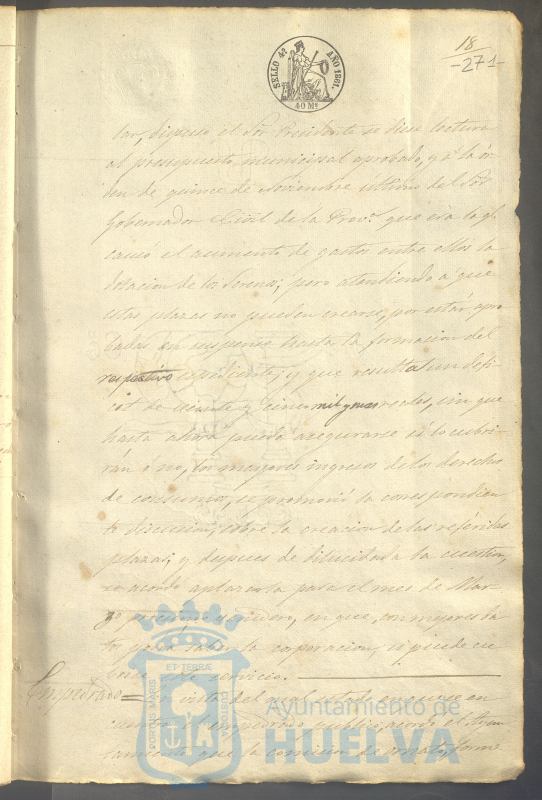 18
-271-
SELLO 4º AÑO 1861.
40 Ms
tar, dispuso el Sor Presidente se diese lectura
al presupuesto municipal aprobado, y á la ór
den de quince de Noviembre último del Sor
Gobernador Civil de la Prov.ª que era la q.e
causó el aumento de gastos entre ellos la
dotacion de los Serenos; pero atendiendo á que
estas plazas no pueden crearse, por estár apro
badas en suspenso hasta la formacion del
respectivo espediente; y que resulta un defi-
cit de veinte y cinco mil y mas reales, sin que
hasta ahora pueda asegurarse si lo cubri-
rán ó no, los mayores ingresos de los derechos
de consumos, se promovió la correspondien
te discusion, sobre la creacion de las referidas
plazas; y despues de dilucidada la cuestion,
se acordó aplazarla para el mes de Mar
zo procsimo venidero, en que, con mayores da
tos podrá saber la corporacion, si puede cu
brirse este servicio.
Empedrado = En vista del mal estado en que se en
cuentra el empedrado público, acordó el Ayun
tamiento que la comision de ornato, forme
PORTUS MARIS
ET TERRÆ
CUSTODIA
Ayuntamiento de
HUELVA